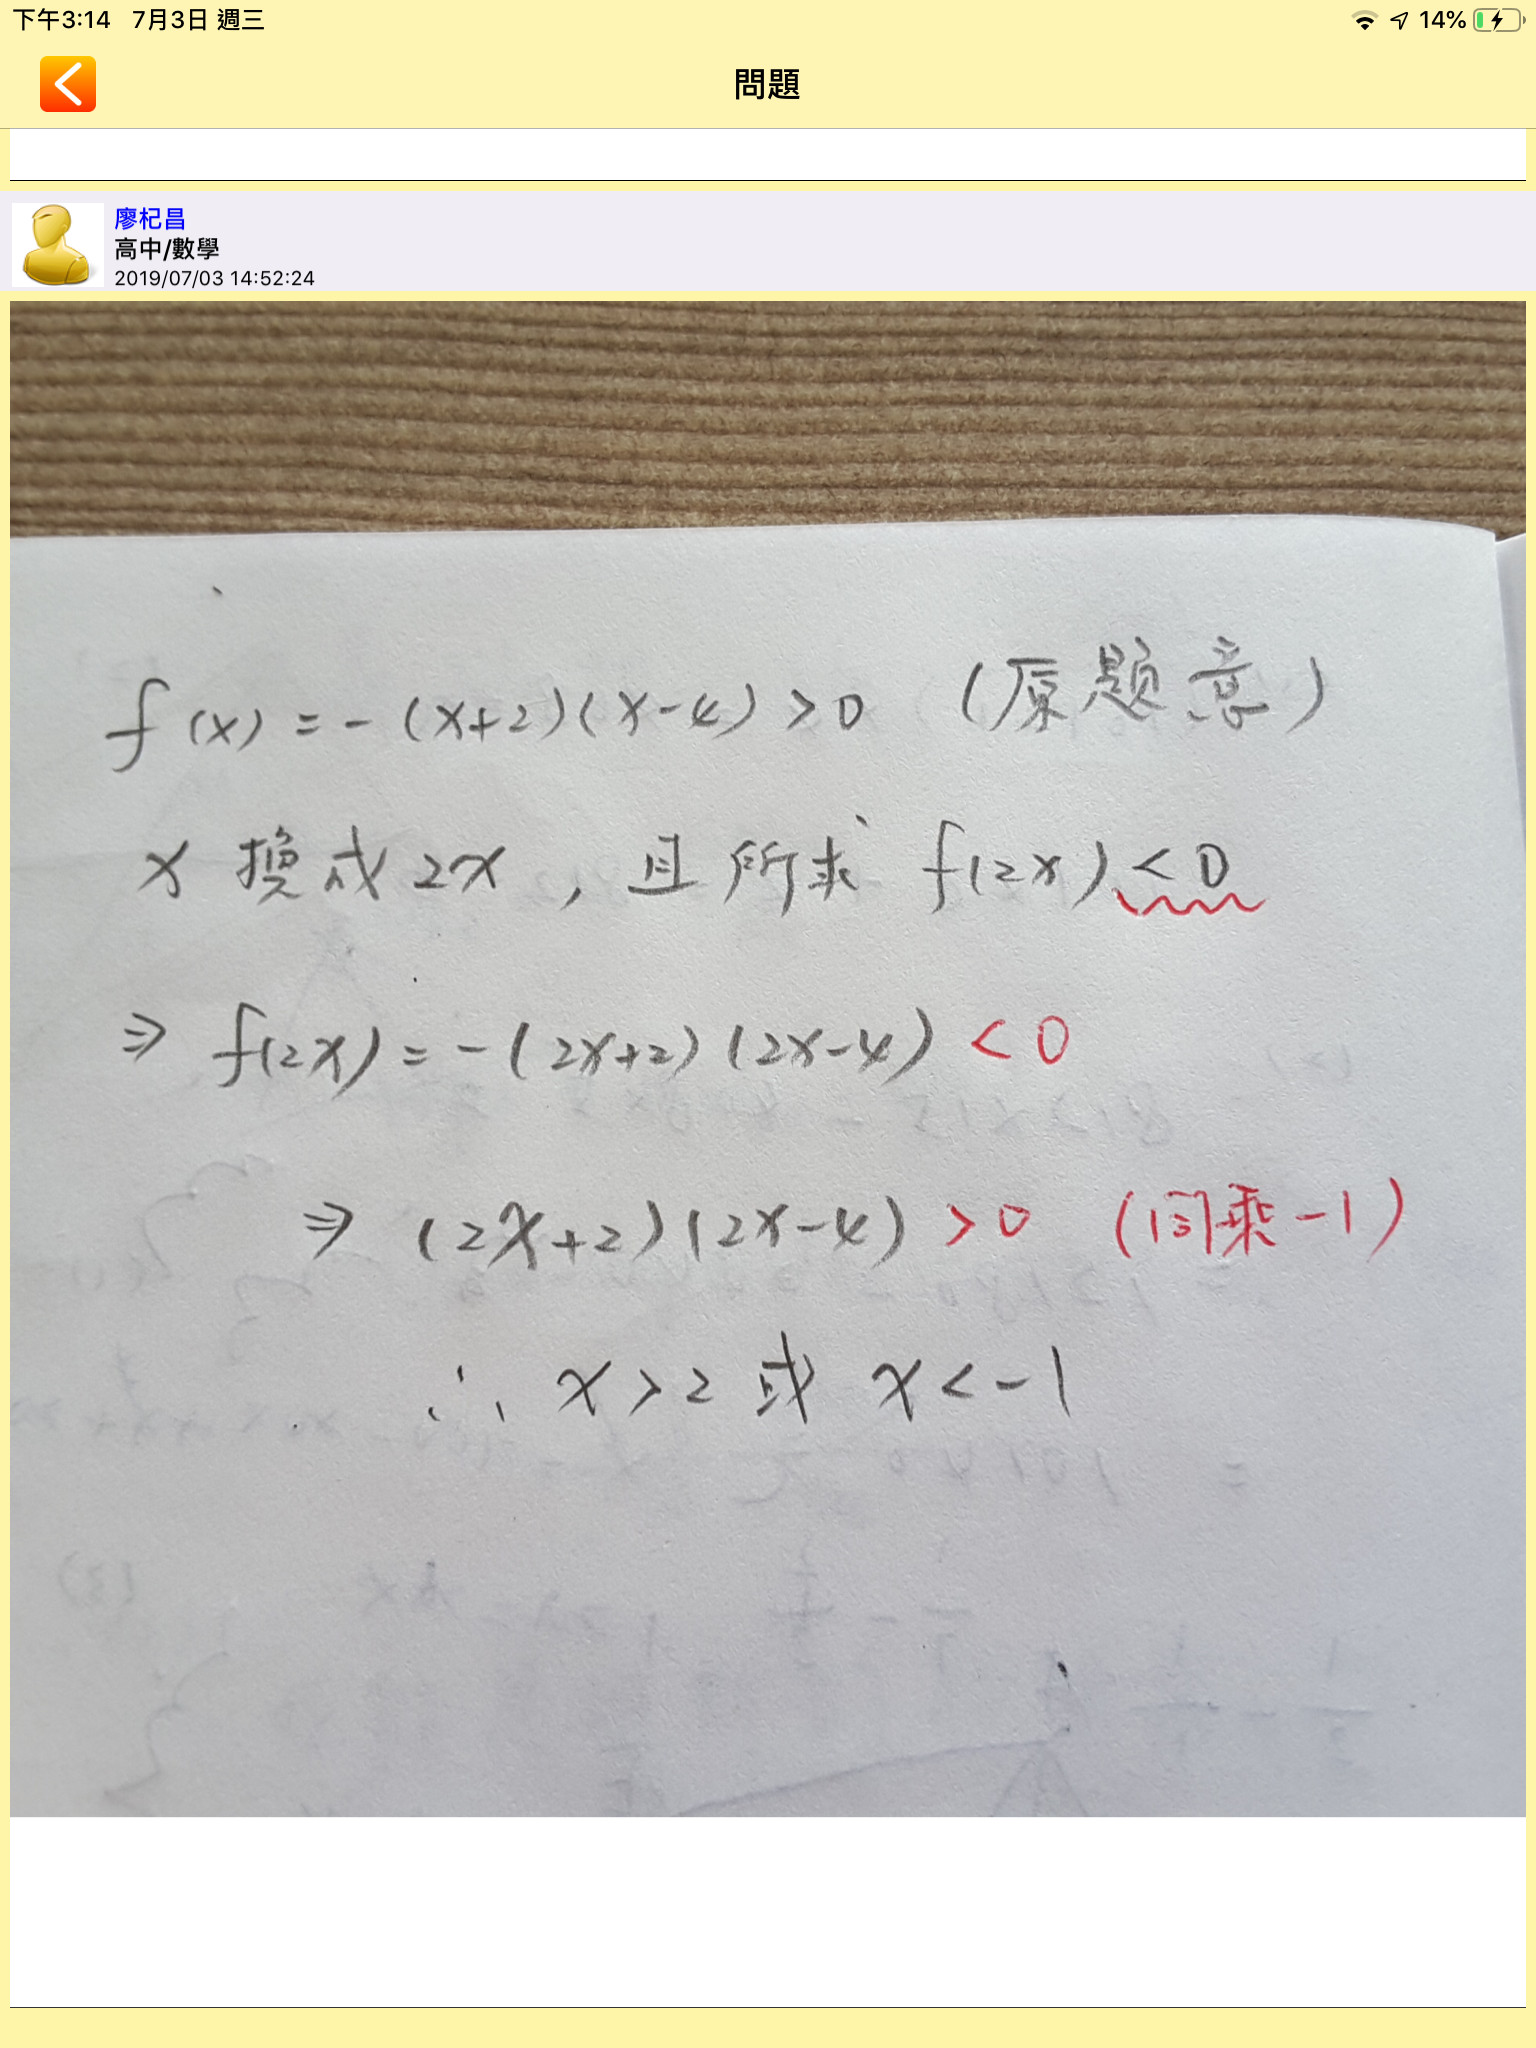 下午3:14 7月3日 週三
14%
問題
廖杞昌
高中/數學
2019/07/03 14:52:24
f(x) = -(x+2)(x-4) > 0 (原題意)
x 換成 2x , 且所求 f(2x) < 0
⇒ f(2x) = -(2x+2)(2x-4) < 0
⇒ (2x+2)(2x-4) > 0 (同乘-1)
∴ x > 2 或 x < -1